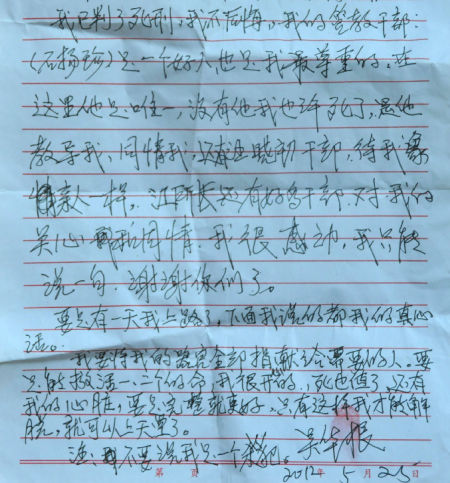 我已判了死刑，我不后悔，我的管教干部：
（石扬珍）是一个好人也是我最尊重的，在
这里他是唯一，没有他我也许死了，是他
教导我，同情我，还有 晓初干部，待我象
亲人一样，江所长还有好多干部，对我的
关心和同情，我很感动，我只能
说一句，谢谢你们了。
要是有一天我上路了，下面我说的都我的真心
话。
我要将我的器官全部捐献给需要的人。要
是能救活一、二个的命，我很开 ，死也值了，还有
我的心脏，要是完整就更好，只有这样我才能解
脱，就可以上天里了。
注：不要说我是一个 犯。 吴 报
第 页 2012年5月25日